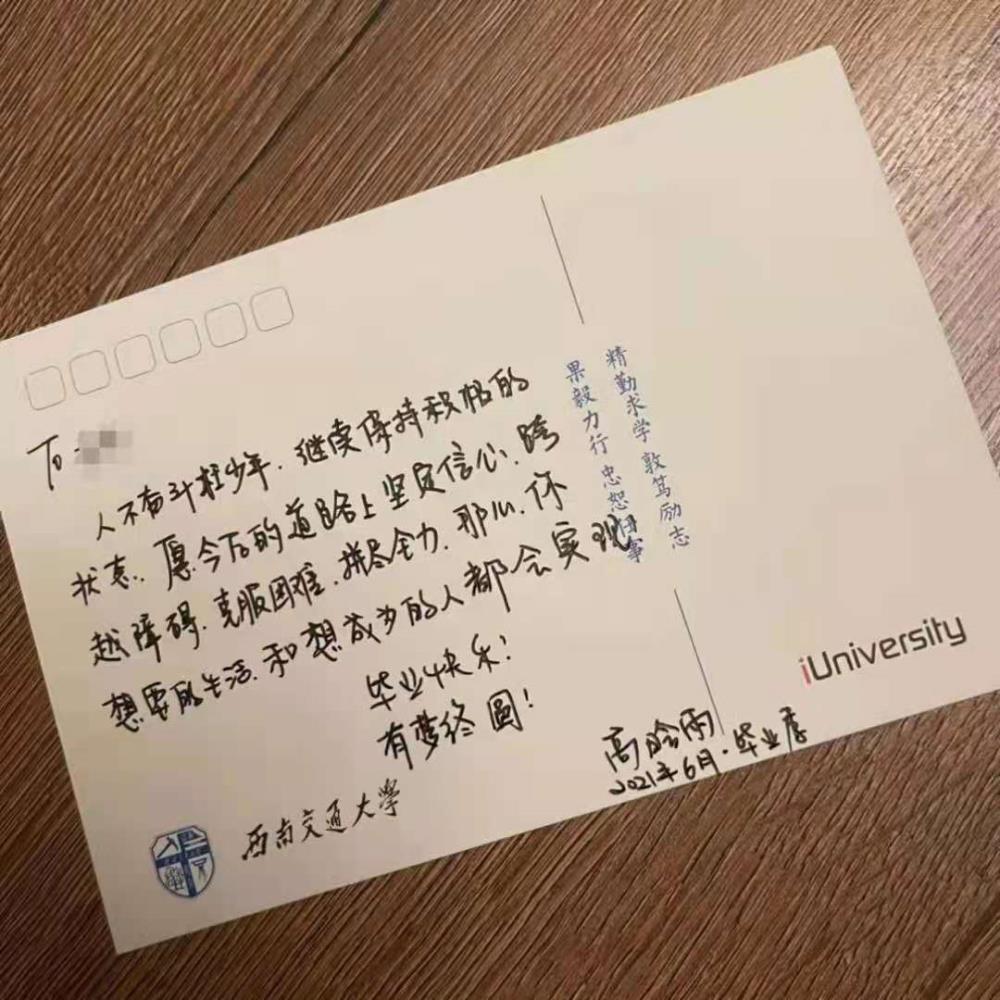 To:
人不奋斗枉少年.继续保持积极的
状态.愿今后的道路上坚定信心.跨
越障碍.克服困难.拼尽全力.那么.你
想要的生活.和想成为的人都会实现
毕业快乐!
有梦终圆!
高晗雨
2021年6月·毕业季
精勤求学 敦笃励志
果毅力行 忠恕任事
iUniversity
西南交通大学